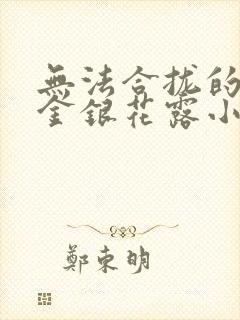 無法合拢的
金銀花露小
鄭東明